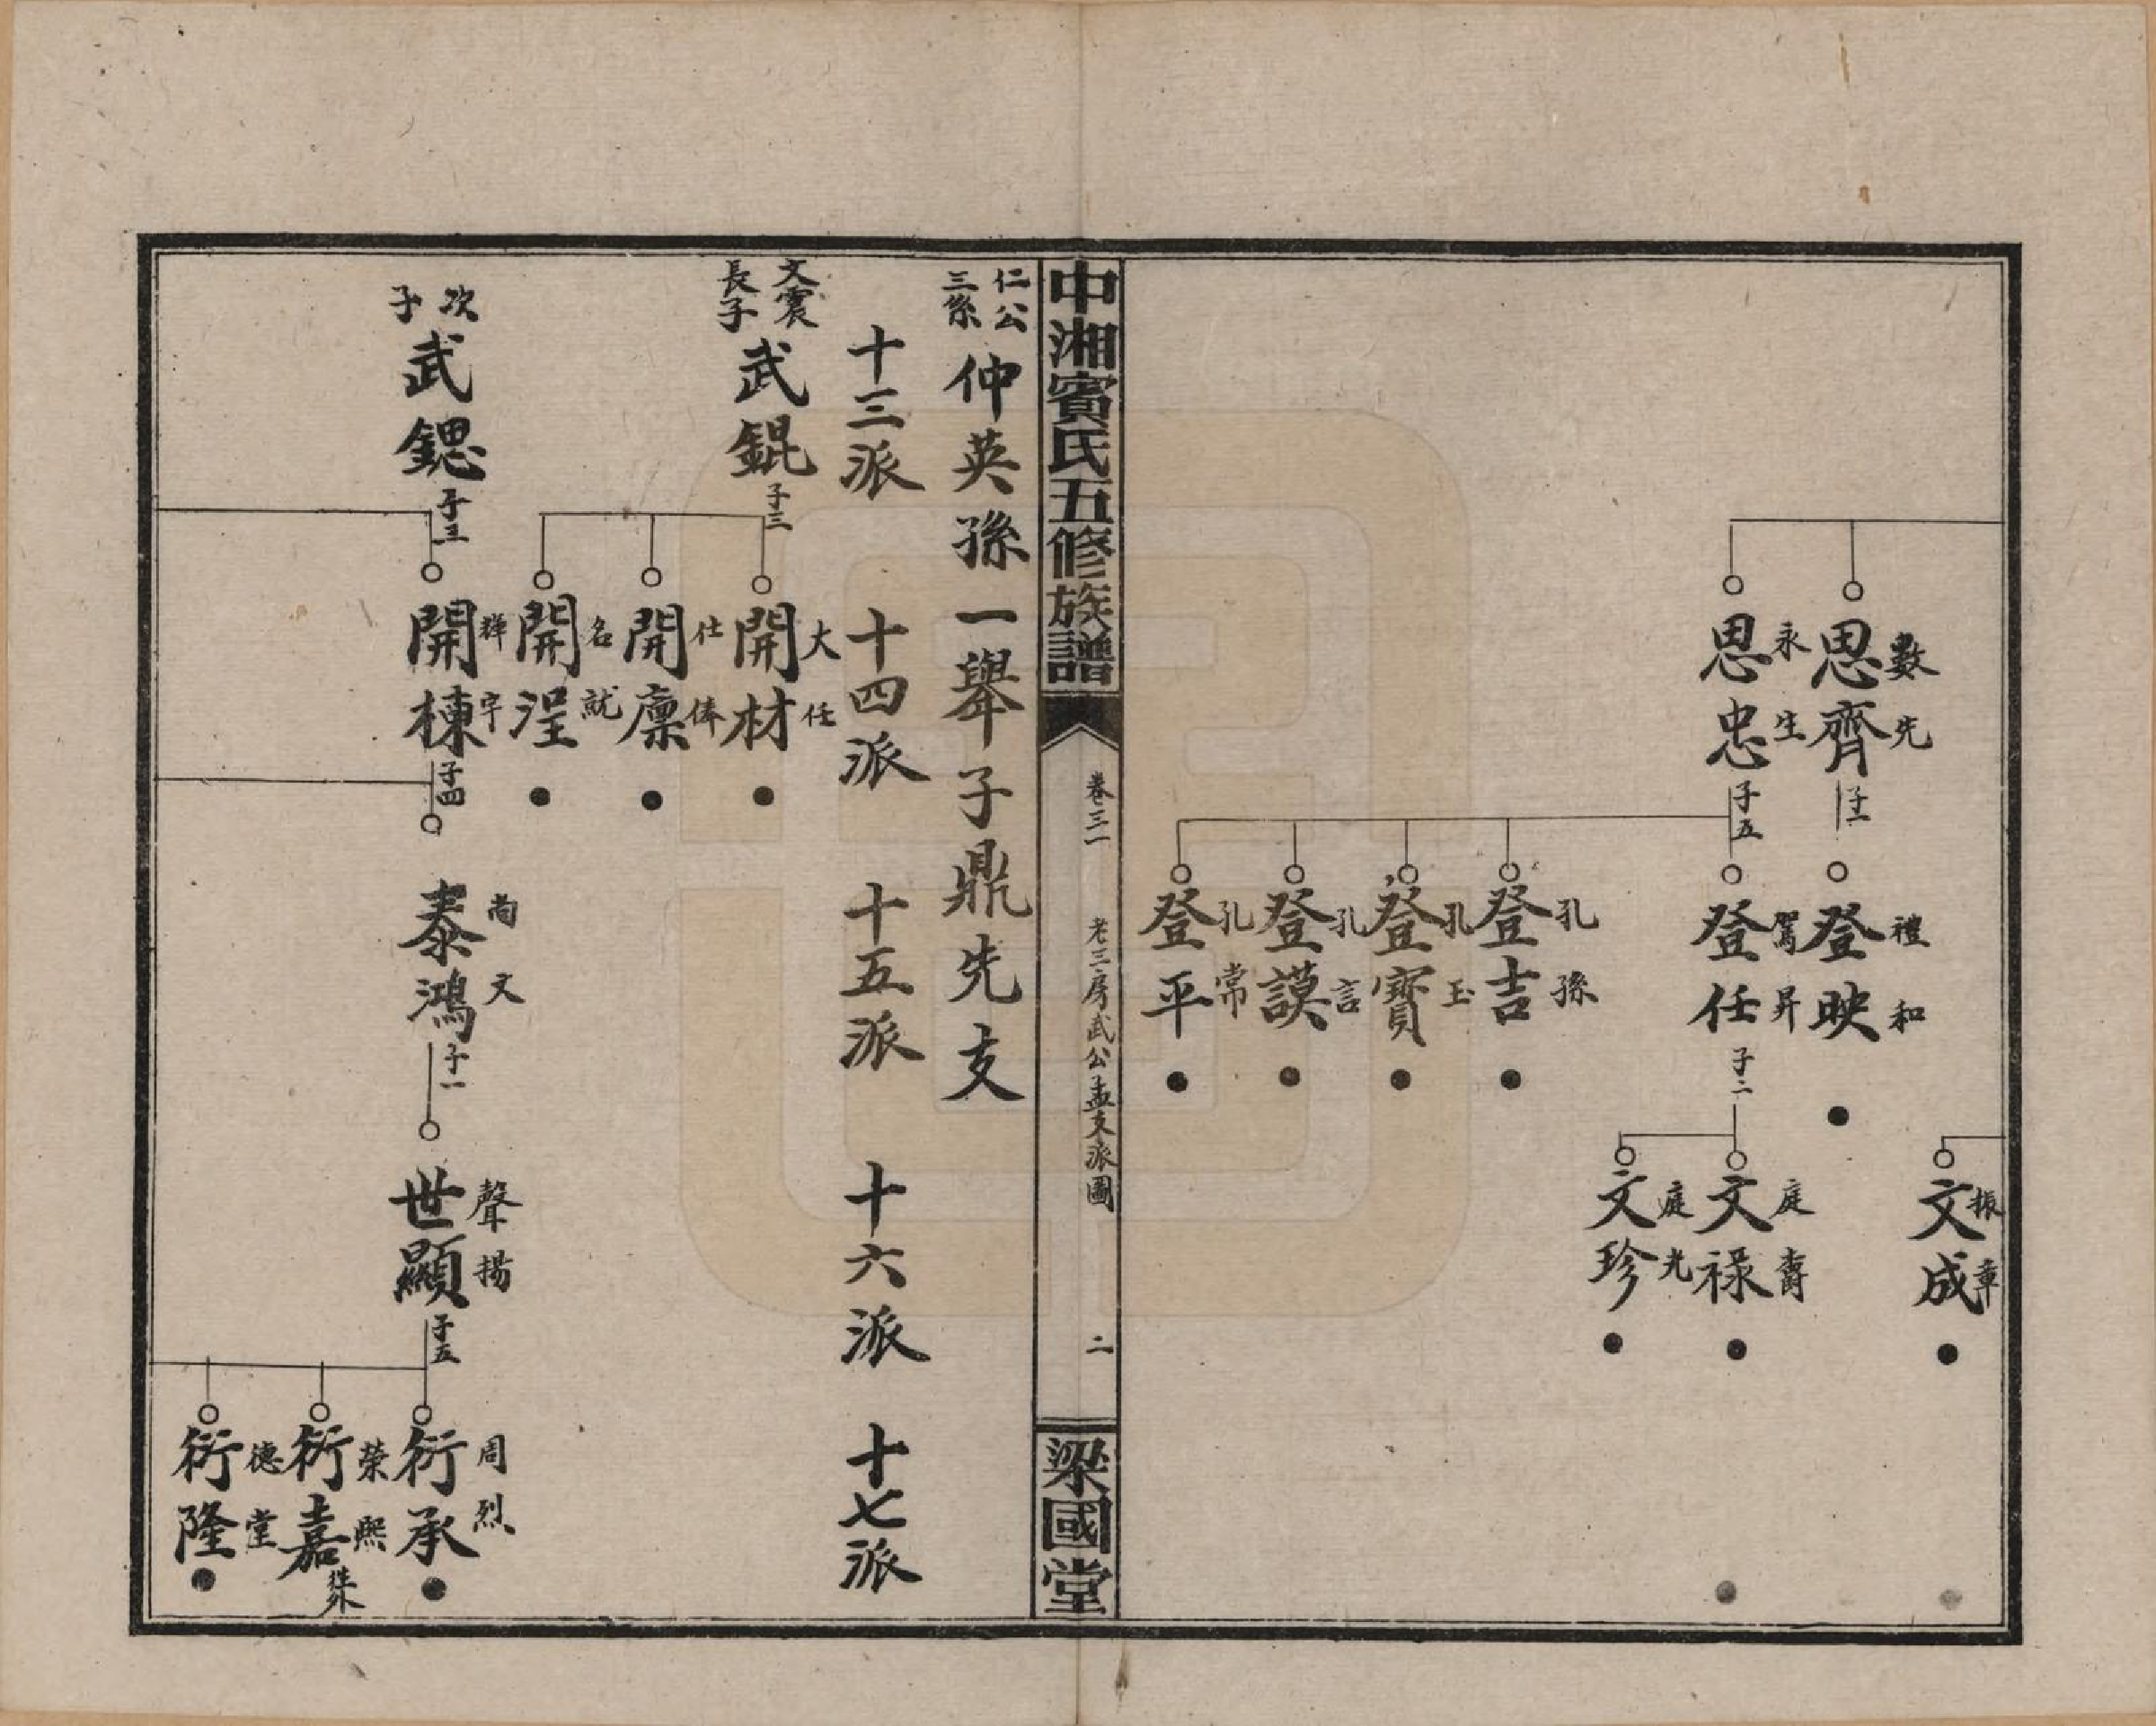 思齊 數先 子一
思忠 永生 子五
登映 禮和
登任 駕昇 子二
登吉 孔孫
登寶 孔玉
登謨 孔言
登平 孔常
文成 振章
文祿 庭壽
文珍 庭光
中湘賓氏五修族譜
卷三一
老三房武公孟支派圖
二
梁國堂
仁公三系 仲英孫一舉子鼎先支
十三派 十四派 十五派 十六派 十七派
文震長子 武錕 子三
開材 大任
開廪 仕俸
開浧 名就
次子 武鍶 子三
開棟 群宇 子四
泰鴻 尚文 子一
世顯 聲揚 子五
衍承 周烈
衍嘉 榮熙
衍隆 德堂